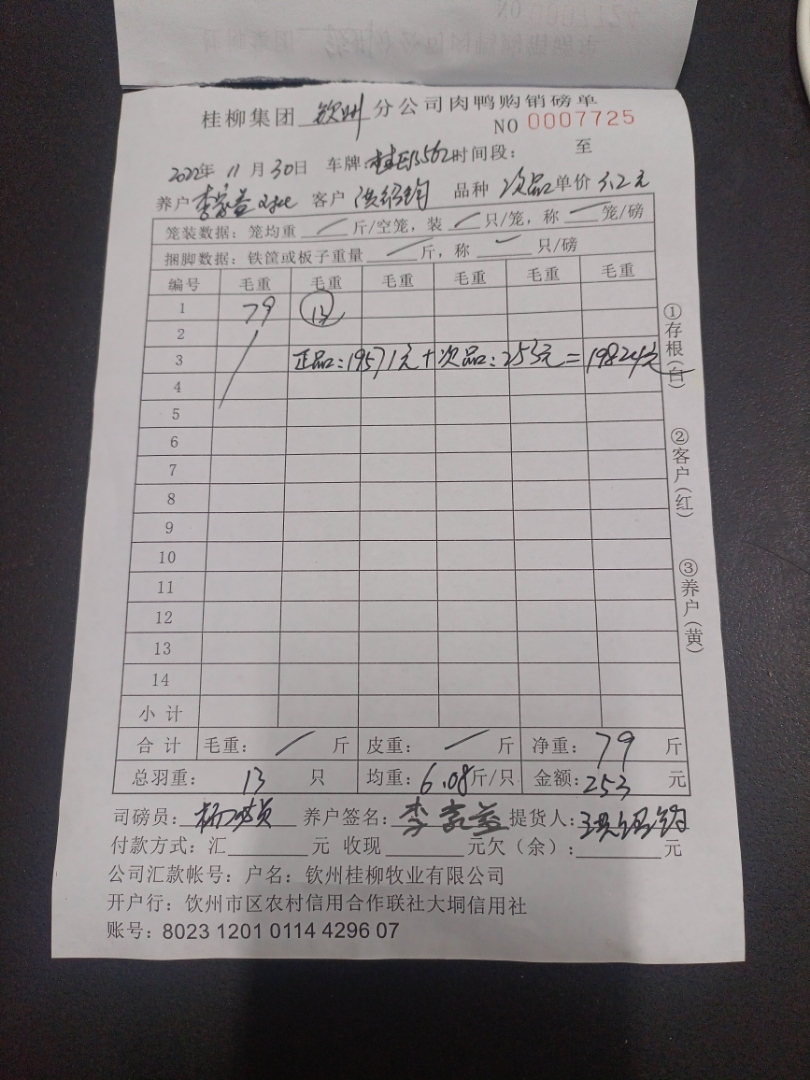 桂柳集团 钦州 分公司肉鸭购销磅单
NO 0007725
2022年 11月30日 车牌: 时间段: 至
养户 李家益 客户 品种 次品 单价 3.2元
笼装数据: 笼均重 / 斤/空笼, 装 / 只/笼, 称 / 笼/磅
捆脚数据: 铁筐或板子重量 / 斤, 称 / 只/磅
编号 毛重 毛重 毛重 毛重 毛重 毛重
1 79 13
2
3 正品:19571元+次品:253元=19824元
4
5
6
7
8
9
10
11
12
13
14
小计
合计 毛重: / 斤 皮重: / 斤 净重: 79 斤
总羽重: 13 只 均重: 6.08斤/只 金额: 253 元
司磅员: 养户签名: 李家益 提货人:
付款方式: 汇 元 收现 元欠(余): 元
公司汇款帐号: 户名: 钦州桂柳牧业有限公司
开户行: 钦州市区农村信用合作联社大垌信用社
账号: 8023 1201 0114 4296 07
①存根(白)
②客户(红)
③养户(黄)